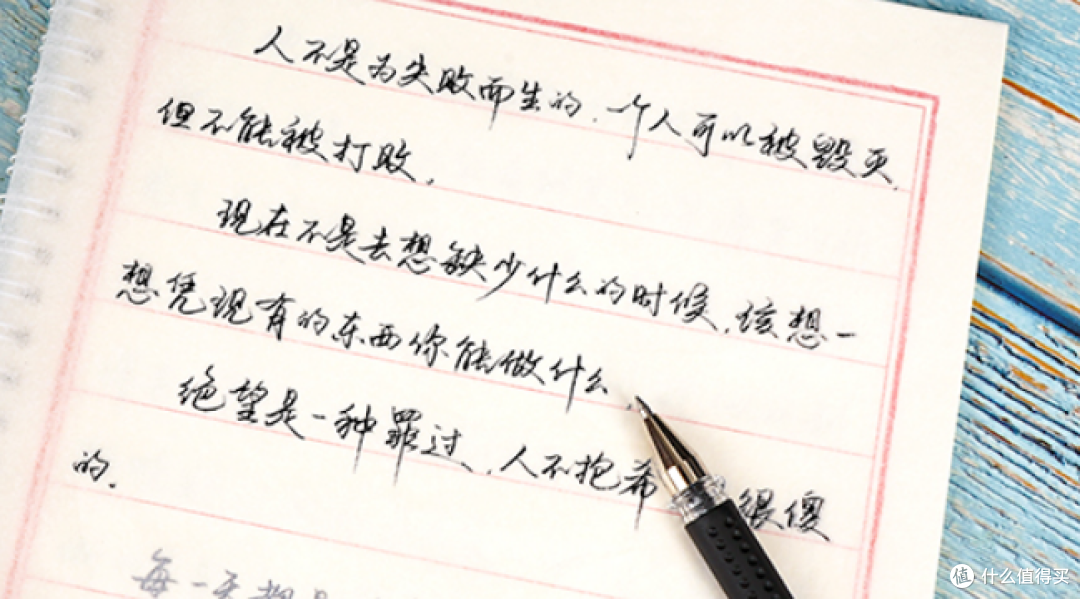 人不是为失败而生的.一个人可以被毁灭.
但不能被打败.
现在不是去想缺少什么的时候,该想一
想凭现有的东西你能做什么.
绝望是一种罪过、人不抱希 很傻
的.
每一天都是
值 什么值得买